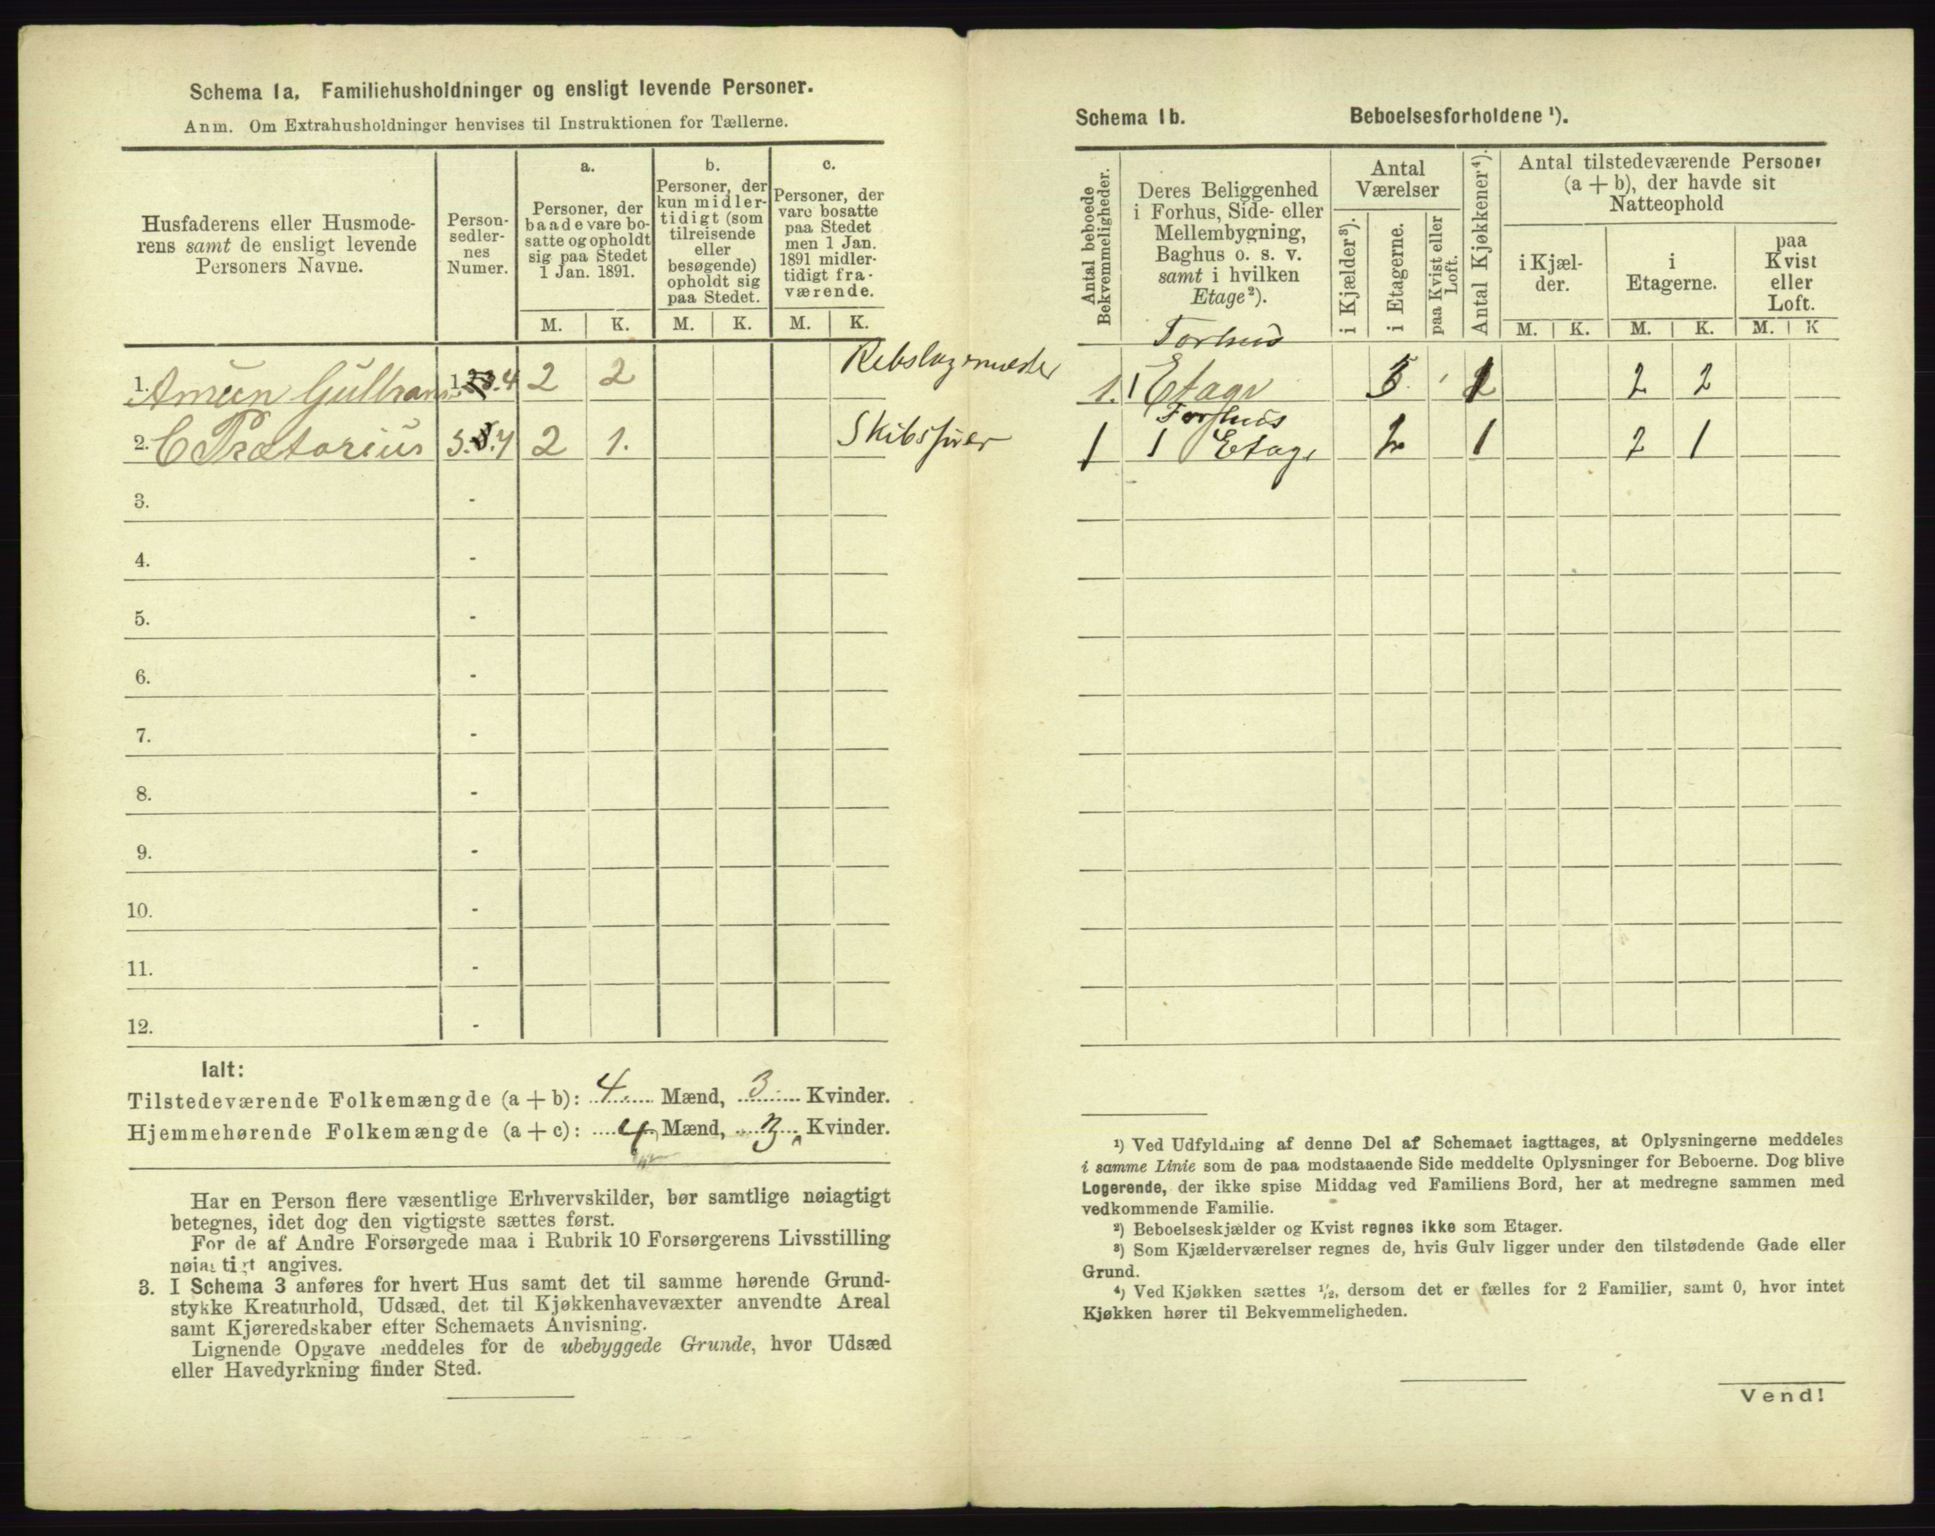 Schema 1a. Familiehusholdninger og ensligt levende Personer.
Anm. Om Extrahusholdninger henvises til Instruktionen for Tællerne.
Husfaderens eller Husmoderens samt de ensligt levende Personers Navne.
Person-sedler-nes Numer.
a.
Personer, der baade vare bosatte og opholdt sig paa Stedet 1 Jan. 1891.
b.
Personer, der kun midlertidigt (som tilreisende eller besøgende) opholdt sig paa Stedet.
c.
Personer, der vare bosatte paa Stedet men 1 Jan. 1891 midlertidigt fraværende.
M. K. M. K. M. K.
1. 2 2 Rebslagermester
2. C Prætorius 2 1. Skibsfører
3. -
4. -
5. -
6. -
7. -
8. -
9. -
10. -
11. -
12. -
Ialt:
Tilstedeværende Folkemængde (a + b): 4. Mænd, 3 Kvinder.
Hjemmehørende Folkemængde (a + c): 4 Mænd, 3 Kvinder.
Har en Person flere væsentlige Erhvervskilder, bør samtlige nøiagtigt
betegnes, idet dog den vigtigste sættes først.
For de af Andre Forsørgede maa i Rubrik 10 Forsørgerens Livsstilling
nøiagtigt angives.
3. I Schema 3 anføres for hvert Hus samt det til samme hørende Grund-
stykke Kreaturhold, Udsæd, det til Kjøkkenhavevæxter anvendte Areal
samt Kjøreredskaber efter Schemaets Anvisning.
Lignende Opgave meddeles for de ubebyggede Grunde, hvor Udsæd
eller Havedyrkning finder Sted.
Schema 1b. Beboelsesforholdene ¹).
Antal beboede Bekvemmeligheder.
Deres Beliggenhed i Forhus, Side- eller Mellembygning, Baghus o. s. v. samt i hvilken Etage²).
Antal Værelser
i Kjælder³).
i Etagerne.
paa Kvist eller Loft.
Antal Kjøkkener⁴).
Antal tilstedeværende Personer (a + b), der havde sit Natteophold
i Kjælder.
i Etagerne.
paa Kvist eller Loft.
M. K. M. K. M. K
Forhus
1. 1 Etage 2 2
Forhus
1 1 Etage 2 1 2 1
¹) Ved Udfyldning af denne Del af Schemaet iagttages, at Oplysningerne meddeles
i samme Linie som de paa modstaaende Side meddelte Oplysninger for Beboerne. Dog blive
Logerende, der ikke spise Middag ved Familiens Bord, her at medregne sammen med
vedkommende Familie.
²) Beboelseskjælder og Kvist regnes ikke som Etager.
³) Som Kjælderværelser regnes de, hvis Gulv ligger under den tilstødende Gade eller
Grund.
⁴) Ved Kjøkken sættes ½, dersom det er fælles for 2 Familier, samt 0, hvor intet
Kjøkken hører til Bekvemmeligheden.
Vend!